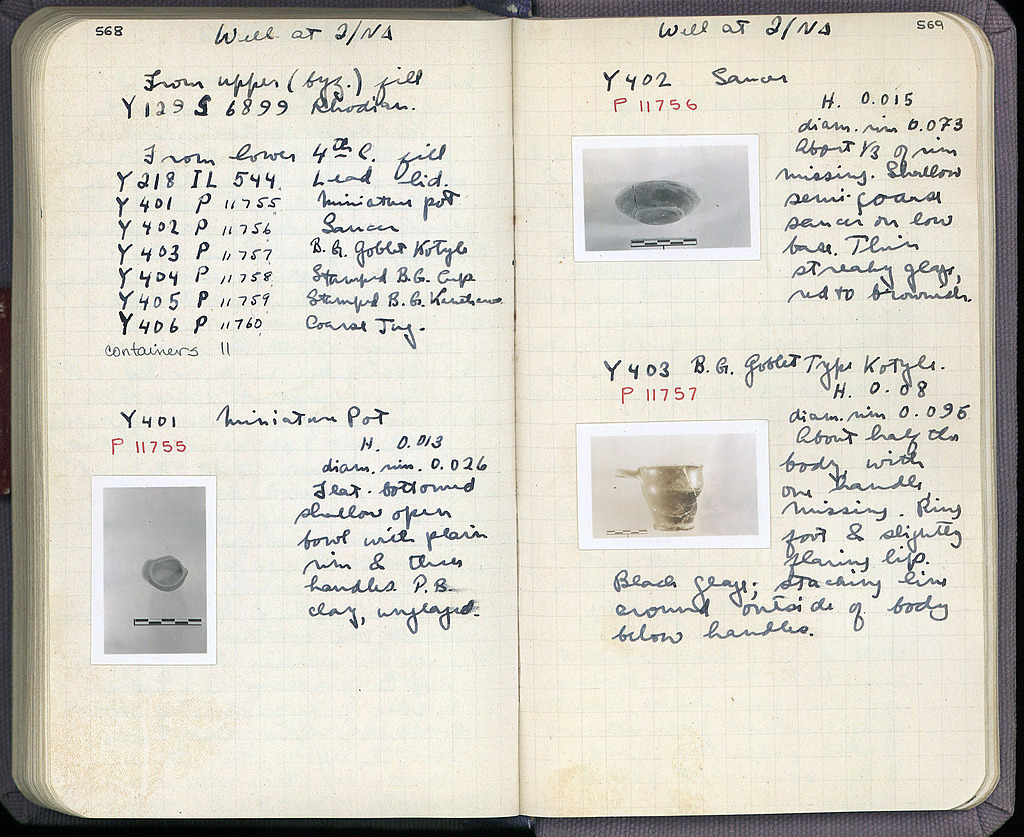 568
Well at 2/ΝΔ
From upper (byz.) fill
Y 129 S 6899 Rhodian.
From lower 4th C. fill
Y 218 IL 544 Lead lid.
Y 401 P 11755 Miniature pot
Y 402 P 11756 Saucer
Y 403 P 11757 B.G. Goblet Kotyle
Y 404 P 11758 Stamped B.G. Cup
Y 405 P 11759 Stamped B.G. Kantharos
Y 406 P 11760 Coarse Jug.
containers 11
Y 401 Miniature Pot
P 11755
H. 0.013
diam. rim. 0.026
Flat-bottomed
shallow open
bowl with plain
rim & three
handles. P.B.
clay, unglazed.
569
Well at 2/ΝΔ
Y 402 Saucer
P 11756
H. 0.015
diam. rim 0.073
About 1/3 of rim
missing. Shallow
semi-coarse
saucer on low
base. Thin
streaky glaze,
red to brownish.
Y 403 B.G. Goblet Type Kotyle.
P 11757
H. 0.08
diam. rim 0.095
About half the
body, with
one handle,
missing. Ring
foot & slightly
flaring lip.
Black glaze; stacking line
around outside of body
below handles.